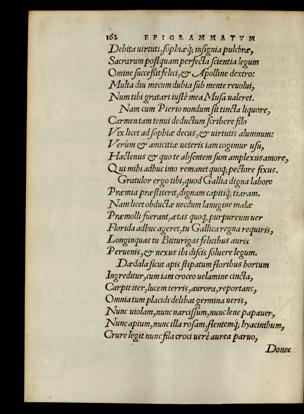 162 EPIGRAMMATVM
Debita uirtuti, sophiæq; insignia pulchræ,
Sacrarum postquam perfecta scientia legum
Omine successit felici, & Apolline dextro:
Multa diu mecum dubia sub mente reuolui,
Num tibi gratari iustè mea Musa ualeret.
Nam cum Pierio nondum sit tincta liquore,
Carmen tam tenui deductum scribere filo
Vix licet ad sophiæ decus, & uirtutis alumnum:
Verùm & amicitiæ ueteris iam cogimur usu,
Hactenus & quo te absentem sum amplexus amore,
Qui mihi adhuc imo remanet quoq; pectore fixus.
Gratulor ergo tibi, quod Gallia digna labore
Præmia præstiterit, dignam capitiq; tiaram.
Nam licet obductæ necdum lanugine malæ
Præmolli fuerant, ætas quoq; purpureum uer
Florida adhuc ageret, tu Gallica regna requiris,
Longinquas tu Bitturigas felicibus auris
Peruenis, & nexus ibi discis soluere legum.
Dædala sicut apis stipatum floribus hortum
Ingreditur, cum iam croceo uelamine cincta,
Carpit iter, lucem terris, aurora, reportans,
Omnia tum placidi delibat germina ueris,
Nunc uiolam, nunc narcissum, nunc lene papauer,
Nunc apium, nunc illa rosam, flentemq; hyacinthum,
Crure legit nunc fila croci uerè aurea paruo,
Donec